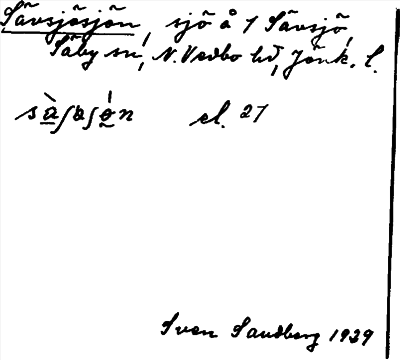 Sävsjösjön, sjö å 1 Sävsjö,
Säby sn, N. Vedbo hd, Jönk. l.
el. 27
Sven Sandberg 1929